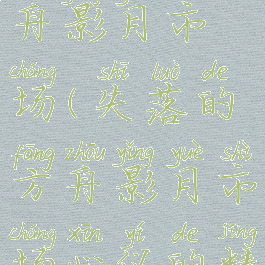 舟影月市
chǎng shī luò de
场(失落的
fāng zhōu yǐng yuè shì
方舟影月市
chǎng xīn yí de jīng